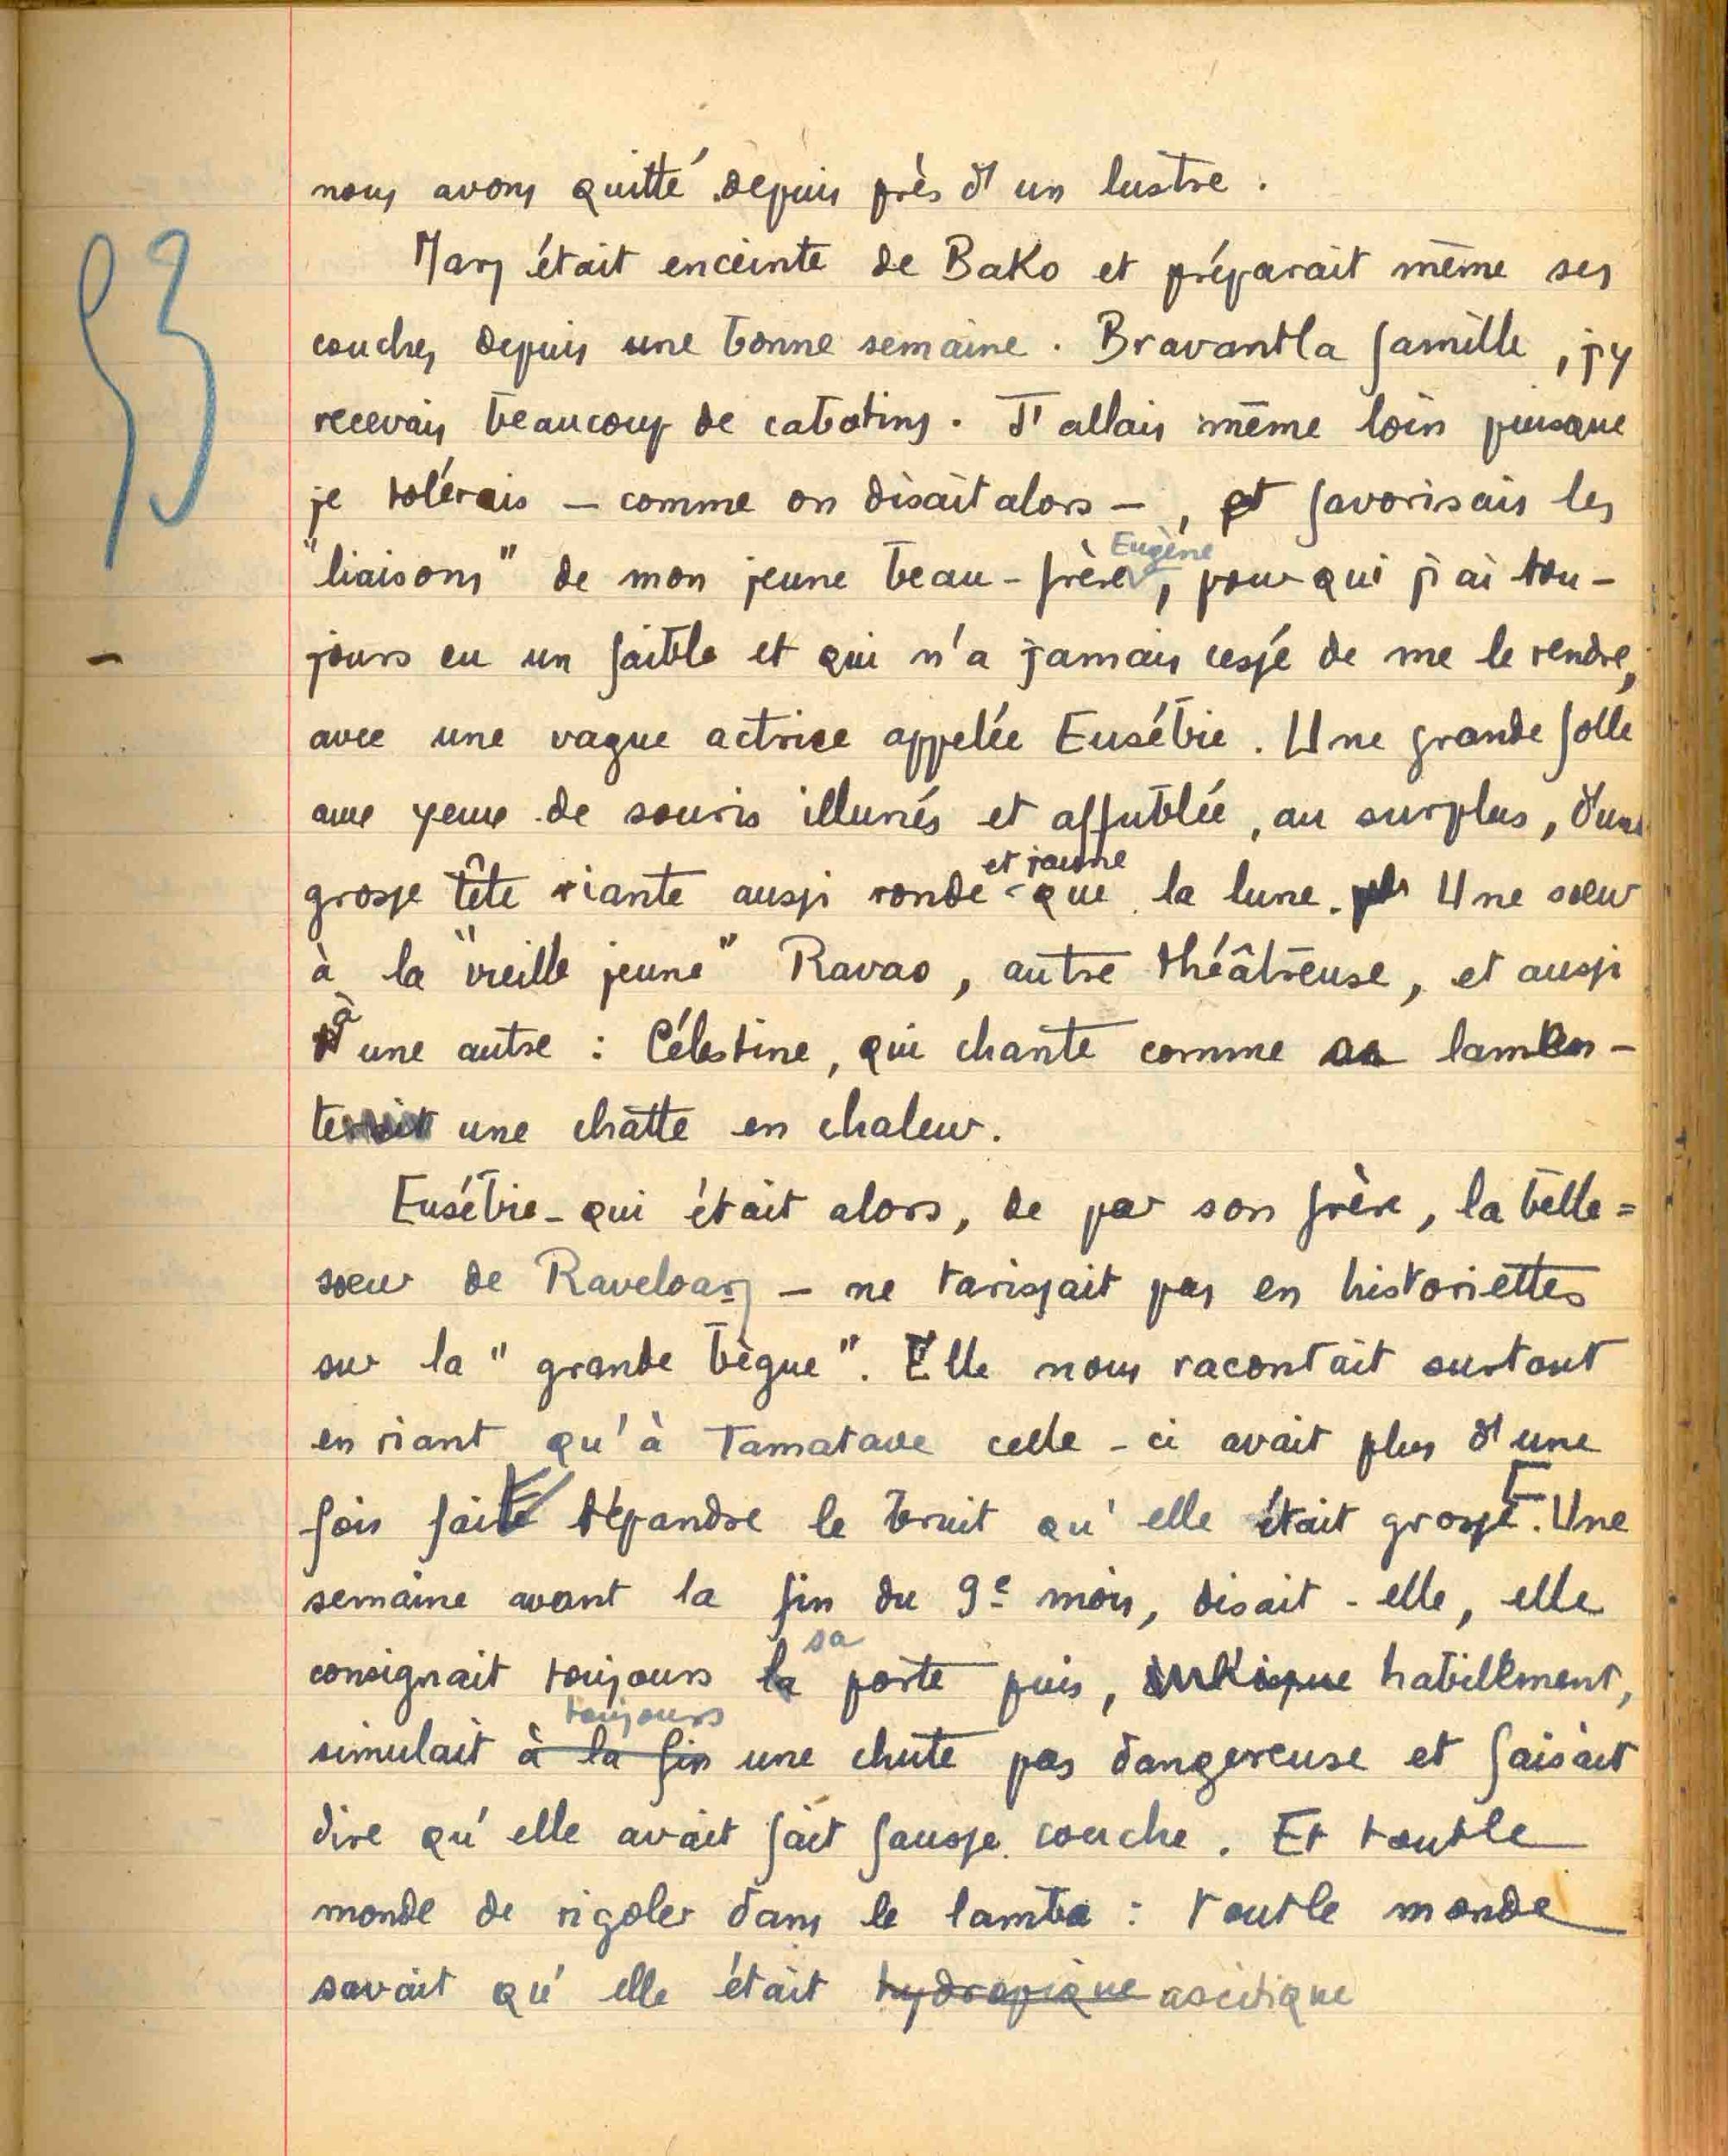 93
nous avons quitté depuis près d'un lustre.
Mary était enceinte de Bako et préparait même ses
couches depuis une bonne semaine. Bravant la famille, j'y
recevais beaucoup de cabotins. J'allais même loin puisque
je tolérais – comme on disait alors –, et favorisais les
"liaisons" de mon jeune beau-frère Eugène, pour qui j'ai tou-
jours eu un faible et qui n'a jamais cessé de me le rendre,
avec une vague actrice appelée Eusébie. Une grande folle
aux yeux de souris illunés et affublée, au surplus, d'une
grosse tête riante aussi ronde et jaune que la lune. Une sœur
à la "vieille jeune" Ravao, autre théâtreuse, et aussi
à une autre : Célestine, qui chante comme lamen-
terait une chatte en chaleur.
Eusébie – qui était alors, de par son frère, la belle=
sœur de Raveloary – ne tarissait pas en historiettes
sur la "grande bègue". Elle nous racontait surtout
en riant qu'à Tamatave celle-ci avait plus d'une
fois fait répandre le bruit qu'elle était grosse. Une
semaine avant la fin du 9e mois, disait-elle, elle
consignait toujours la sa porte puis, habillement,
simulait à la fin toujours une chute pas dangereuse et faisait
dire qu'elle avait fait fausse couche. Et tout le
monde de rigoler dans le lamba : tout le monde
savait qu'elle était hydropique ascitique